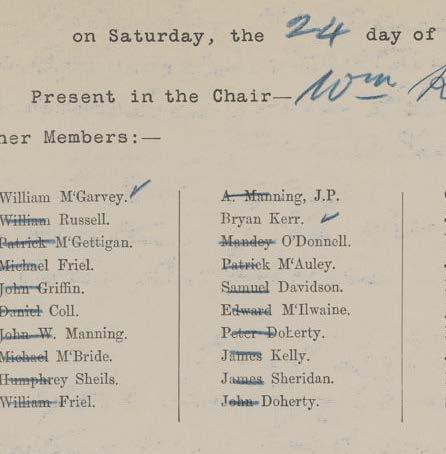 on Saturday, the 24 day of
Present in the Chair—Wm
her Members:—
William M‘Garvey.
William Russell.
Patrick M‘Gettigan.
Michael Friel.
John Griffin.
Daniel Coll.
John W. Manning.
Michael M‘Bride.
Humphrey Sheils.
William Friel.
A. Manning, J.P.
Bryan Kerr.
Mandey O’Donnell.
Patrick M‘Auley.
Samuel Davidson.
Edward M‘Ilwaine.
Peter Doherty.
James Kelly.
James Sheridan.
John Doherty.